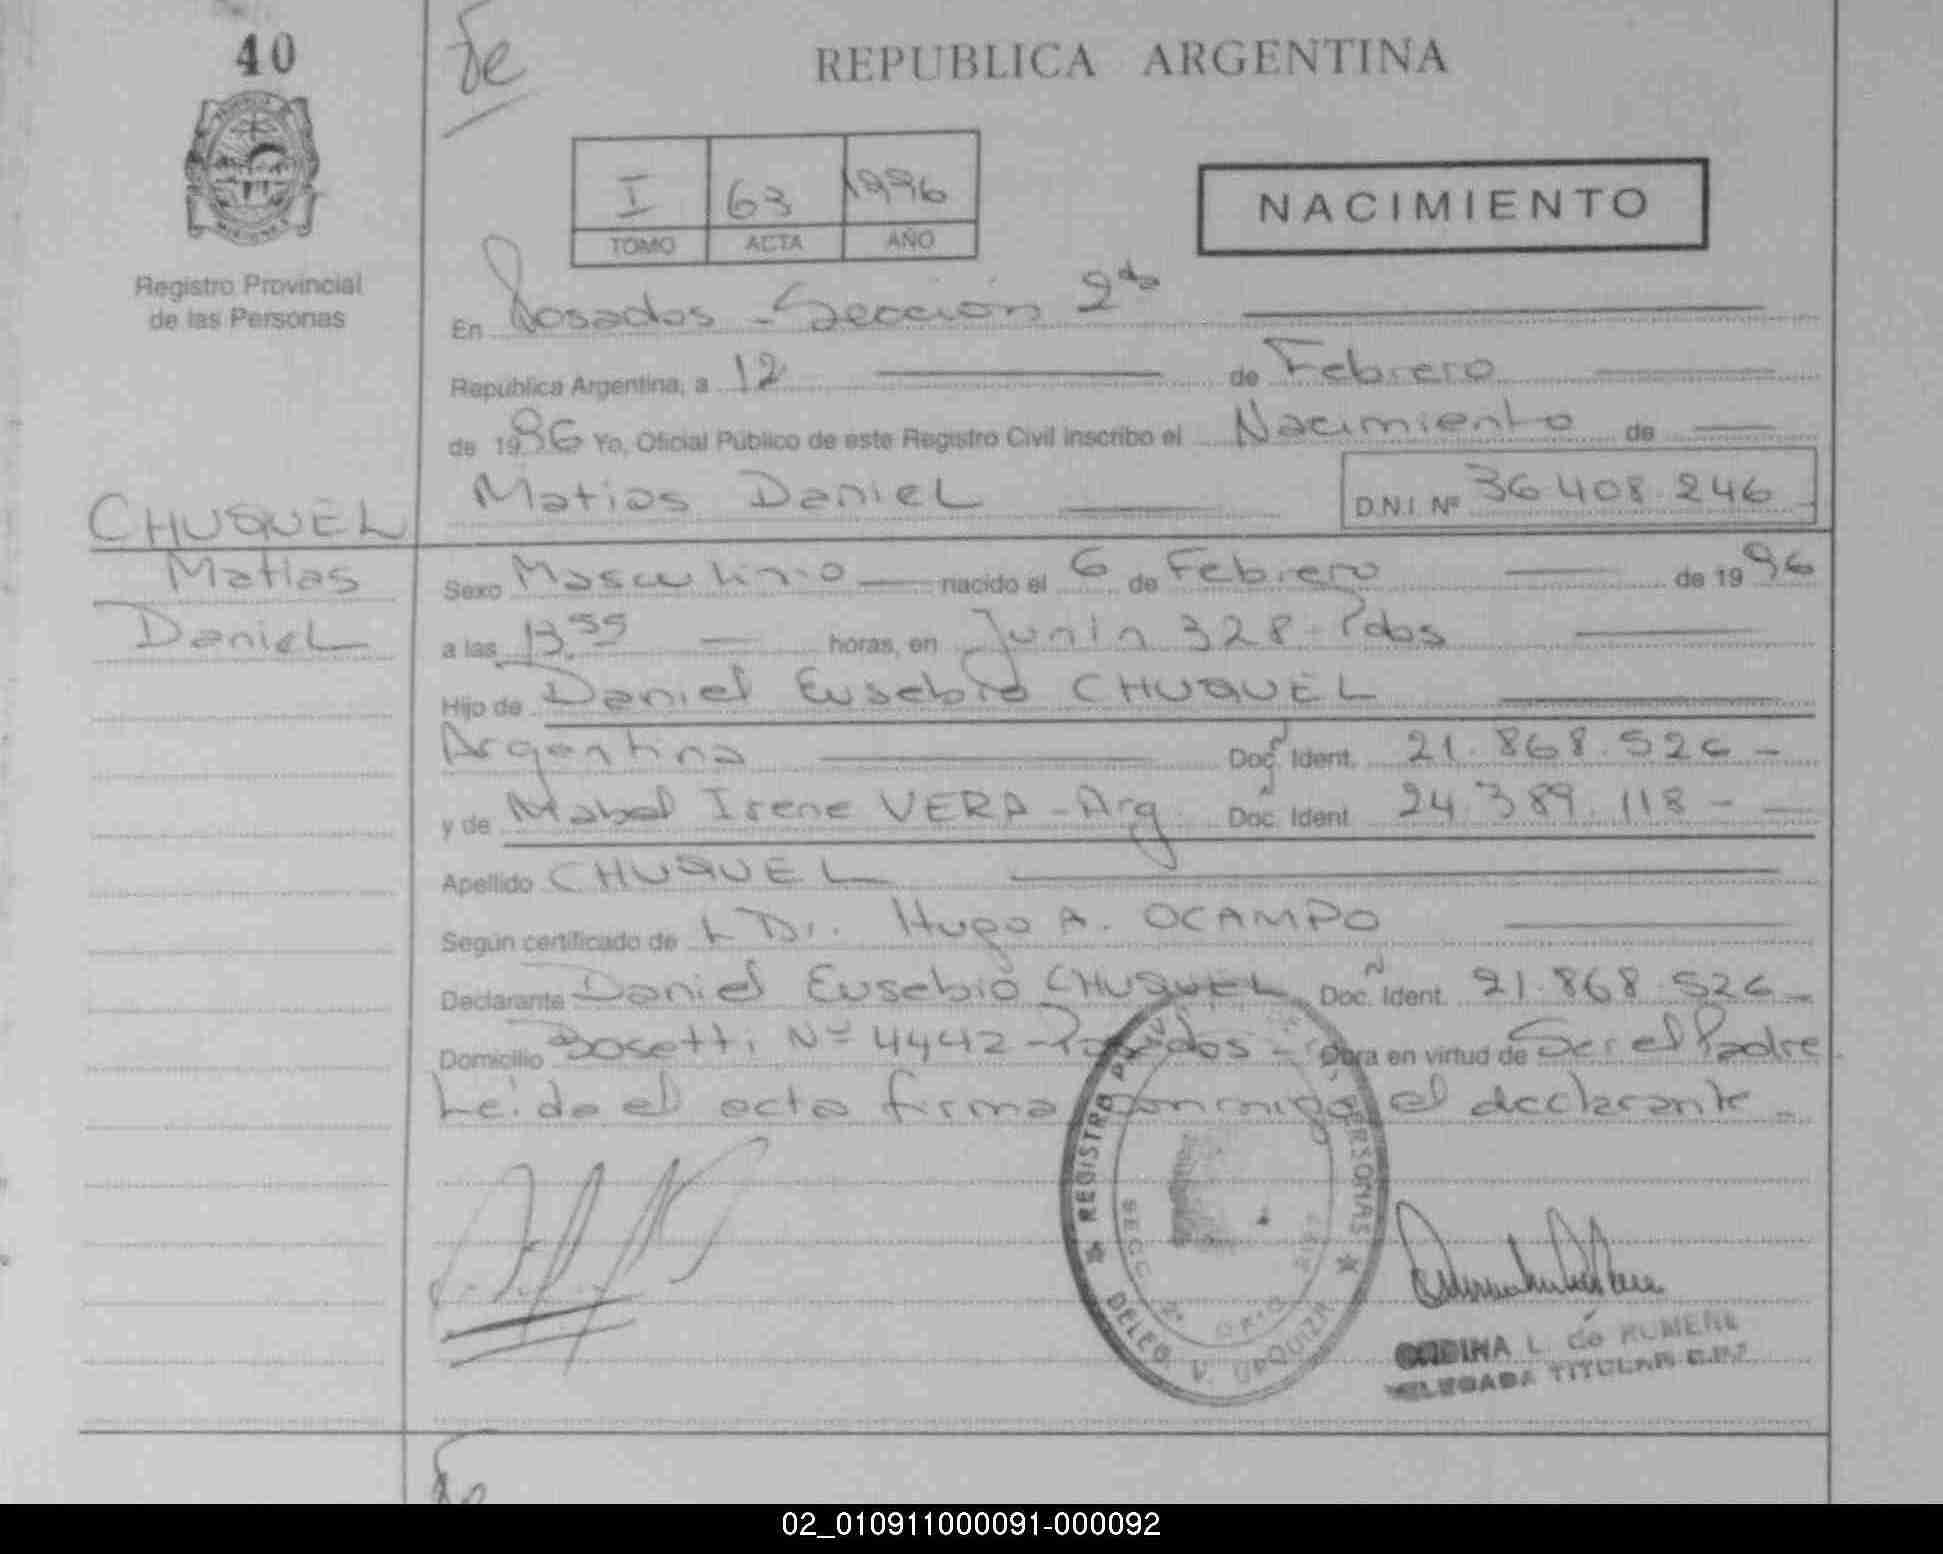 40
REPUBLICA ARGENTINA
I 63 1996
TOMO ACTA AÑO
NACIMIENTO
Registro Provincial
de las Personas
En Posadas - Sección 2da
República Argentina, a 12 de Febrero
de 1996 Yo, Oficial Público de este Registro Civil inscribo el Nacimiento de
Matias Daniel D.N.I. Nº 36.408.246
CHUQUEL
Matias
Daniel
Sexo Masculino nacido el 6 de Febrero de 1996
a las 13.55 horas, en Junin 328 - Pdas
Hijo de Daniel Eusebio CHUQUEL
Argentina Doc. Ident. 21.868.526 -
y de Mabel Irene VERA - Arg. Doc. Ident. 24.389.118 -
Apellido CHUQUEL
Según certificado de L Dr. Hugo A. OCAMPO
Declarante Daniel Eusebio CHUQUEL Doc. Ident. 21.868.526 -
Domicilio Bosetti Nº 4442 - Posadas - Obra en virtud de Ser el Padre
Leida el acta firma conmigo el declarante.
REGISTRO PERSONAS
SECC. 2ª
DELEG
L. de
DELEGADA TITULAR
02_010911000091-000092